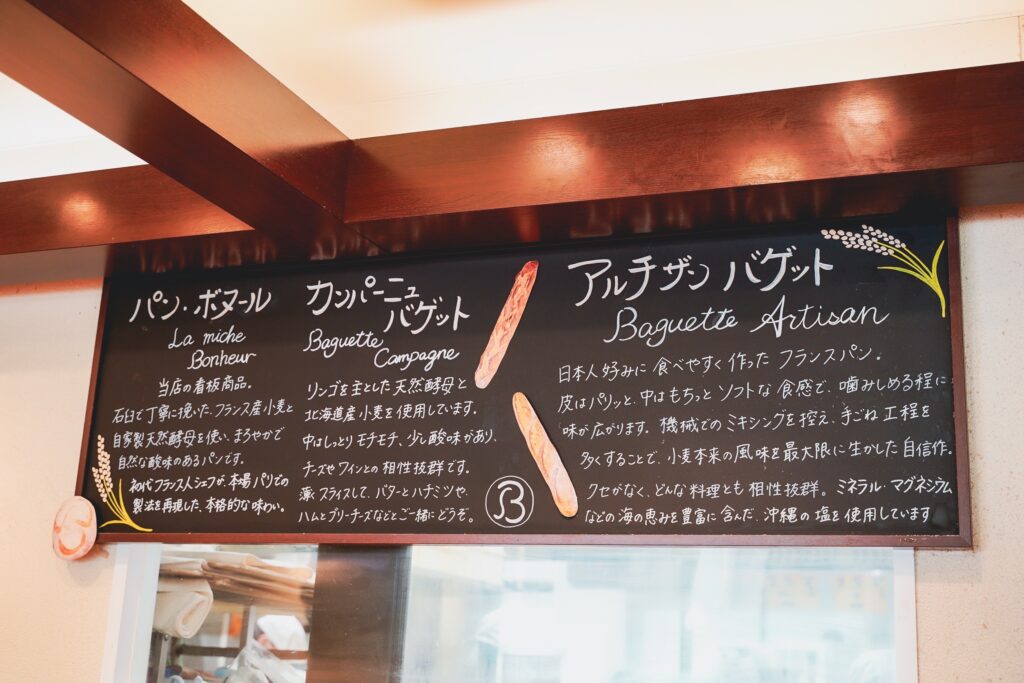 パン・ボヌール
La miche
Bonheur
当店の看板商品。
石臼で丁寧に挽いた、フランス産小麦と
自家製天然酵母を使い、まろやかで
自然な酸味のあるパンです。
初代フランス人シェフが、本場パリでの
製法を再現した、本格的な味わい。
カンパーニュ
バゲット
Baguette
Campagne
リンゴを主とした天然酵母と
北海道産小麦を使用しています。
中はしっとりモチモチ、少し酸味があり、
チーズやワインとの相性抜群です。
薄くスライスして、バターとハチミツや、
ハムとブリーチーズなどとご一緒にどうぞ。
B
アルチザン バゲット
Baguette Artisan
日本人好みに食べやすく作ったフランスパン。
皮はパリッと、中はもちっとソフトな食感で、噛みしめる程に
味が広がります。機械でのミキシングを控え、手ごね工程を
多くすることで、小麦本来の風味を最大限に生かした自信作。
クセがなく、どんな料理とも相性抜群。ミネラル・マグネシウム
などの海の恵みを豊富に含んだ、沖縄の塩を使用しています